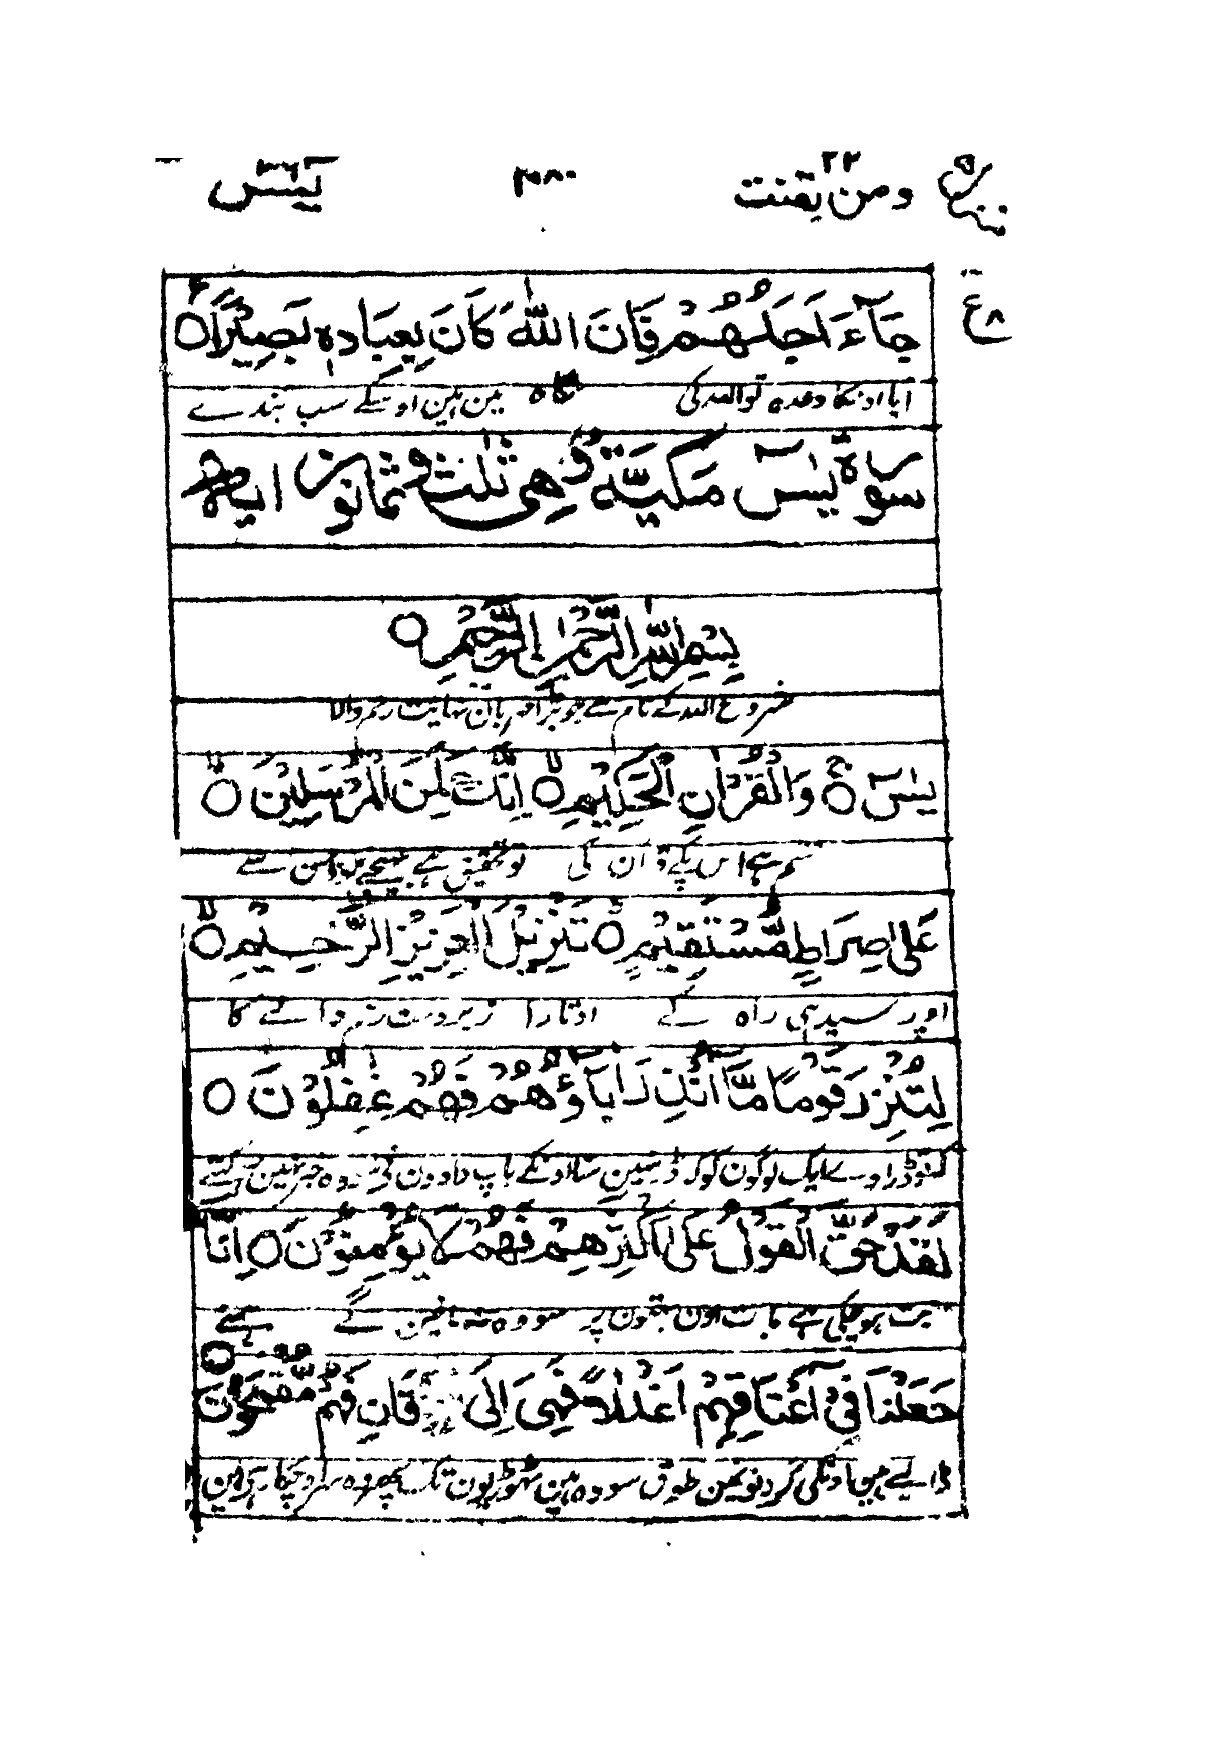 ومن یقنت ٢٢ ٣٠٨٠ یٰسٓ ٣٦
جَآءَ اَجَلُهُمْ فَاِنَّ اللّٰهَ كَانَ بِعِبَادِهٖ بَصِيْرًا
آیا اونکا وعدہ تو اللہ کی نگاہ مین ہین اوسکے سب بندے
سورۃ یٰسٓ مکیۃ وهی ثلٰث وثمانون ایۃ
بِسْمِ اللّٰهِ الرَّحْمٰنِ الرَّحِيْمِ
شروع اللہ کے نام سے جو بڑا مہربان نہایت رحم والا
يٰسٓ وَالْقُرْاٰنِ الْحَكِيْمِ اِنَّكَ لَمِنَ الْمُرْسَلِيْنَ
قسم ہے اس پکے قرآن کی تو تحقیق ہے بھیجے ہوؤن سے
عَلٰى صِرَاطٍ مُّسْتَقِيْمٍ تَنْزِيْلَ الْعَزِيْزِ الرَّحِيْمِ
اوپر سیدہی راہ کے اوتارا زبردست رحم والے کا
لِتُنْذِرَ قَوْمًا مَّآ اُنْذِرَ اٰبَآؤُهُمْ فَهُمْ غٰفِلُوْنَ
کہ تو ڈراوے ایک لوگون کو کہ ڈر نہین سنا اونکے باپ دادون نے سو وہ خبر نہین رکھتے
لَقَدْ حَقَّ الْقَوْلُ عَلٰٓى اَكْثَرِهِمْ فَهُمْ لَا يُؤْمِنُوْنَ اِنَّا
ثابت ہو چکی ہے بات اون بہتون پر سو وہ نہ مانین گے ہمنے
جَعَلْنَا فِيْٓ اَعْنَاقِهِمْ اَغْلٰلًا فَهِيَ اِلَى الْاَذْقَانِ فَهُمْ مُّقْمَحُوْنَ
ڈالے ہین اونکی گردنونمین طوق سو وہ ہین ٹھوڑیون تک پھر وہ سر اوچکا رہے ہین